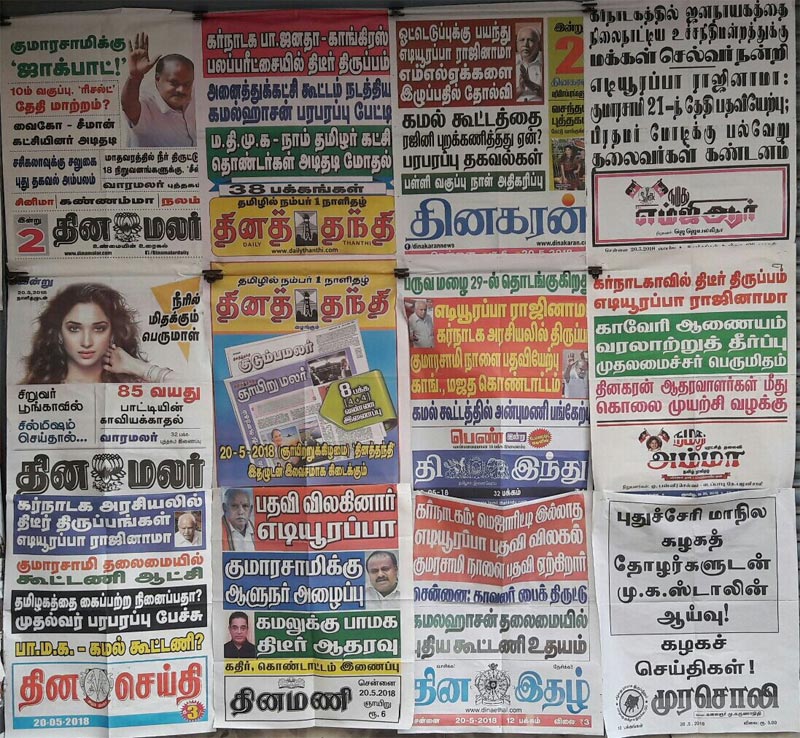 குமாரசாமிக்கு
'ஜாக்பாட்!'
10ம் வகுப்பு, 'ரிசல்ட்'
தேதி மாற்றம்?
வைகோ - சீமான்
கட்சியினர் அடிதடி
சசிகலாவுக்கு சலுகை
புது தகவல் அம்பலம்
மாதவரத்தில் நீர் திருட்டு
18 நிறுவனங்களுக்கு,
வாரமலர் புத்தகம்
சினிமா கண்ணம்மா நலம்
இன்று
2
தின மலர்
உண்மையின் உரைகல்
www.dinamalar.com
கர்நாடக பா.ஜனதா - காங்கிரஸ்
பலப்பரீட்சையில் திடீர் திருப்பம்
அனைத்துக்கட்சி கூட்டம் நடத்திய
கமல்ஹாசன் பரபரப்பு பேட்டி
ம.தி.மு.க - நாம் தமிழர் கட்சி
தொண்டர்கள் அடிதடி மோதல்
38 பக்கங்கள்
தமிழில் நம்பர் 1 நாளிதழ்
தினத் தந்தி
DAILY THANTHI
www.dailythanthi.com
ஓட்டெடுப்புக்கு பயந்து
எடியூரப்பா ராஜினாமா
எம்எல்ஏக்களை
இழுப்பதில் தோல்வி
இன்று
2
கமல் கூட்டத்தை
ரஜினி புறக்கணித்தது ஏன்?
பரபரப்பு தகவல்கள்
பள்ளி வகுப்பு நாள் அதிகரிப்பு
தினகரன்
/dinakarannews
www.dinakaran.com
கர்நாடகத்தில் ஜனநாயகத்தை
நிலைநாட்டிய உச்சநீதிமன்றத்துக்கு
மக்கள் செல்வர் நன்றி
எடியூரப்பா ராஜினாமா:
குமாரசாமி 21-ந் தேதி பதவியேற்பு;
பிரதமர் மோடிக்கு பல்வேறு
தலைவர்கள் கண்டனம்
நமது
எம்ஜிஆர்
சென்னை 20.5.2018
இன்று
20.5.2018
நீரில்
மிதக்கும்
பெருமாள்
சிறுவர்
பூங்காவில்
சில்மிஷம்
செய்தால்...
85 வயது
பாட்டியின்
காவியக்காதல்
வாரமலர்
32 பக்க
தின மலர்
தமிழில் நம்பர் 1 நாளிதழ்
தினத் தந்தி
வழங்கும்
குடும்பமலர்
ஞாயிறு மலர்
8 பக்க
4+4
வண்ண
இணைப்பு
20-5-2018 ஞாயிற்றுக்கிழமை 'தினத்தந்தி'
இதழுடன் இலவசமாக கிடைக்கும்
பருவ மழை 29-ல் தொடங்குகிறது
எடியூரப்பா ராஜினாமா
கர்நாடக அரசியலில் திருப்பம்
குமாரசாமி நாளை பதவியேற்பு
காங்., மஜத கொண்டாட்டம்
கமல் கூட்டத்தில் அன்புமணி பங்கேற்பு
பெண் இன்று
தி இந்து
32 பக்கம்
கர்நாடகாவில் திடீர் திருப்பம்
எடியூரப்பா ராஜினாமா
காவேரி ஆணையம்
வரலாற்றுத் தீர்ப்பு
முதலமைச்சர் பெருமிதம்
தினகரன் ஆதரவாளர்கள் மீது
கொலை முயற்சி வழக்கு
நமது
அம்மா
கர்நாடக அரசியலில்
திடீர் திருப்பங்கள்
எடியூரப்பா ராஜினாமா
குமாரசாமி தலைமையில்
கூட்டணி ஆட்சி
தமிழகத்தை கைப்பற்ற நினைப்பதா?
முதல்வர் பரபரப்பு பேச்சு
பா.ம.க. - கமல் கூட்டணி?
தின செய்தி
20-05-2018
3
பதவி விலகினார்
எடியூரப்பா
குமாரசாமிக்கு
ஆளுநர் அழைப்பு
கமலுக்கு பாமக
திடீர் ஆதரவு
கதிர், கொண்டாட்டம் இணைப்பு
தினமணி
சென்னை
20.5.2018
ஞாயிறு
ரூ. 6
கர்நாடகம்: மெஜாரிட்டி இல்லாத
எடியூரப்பா பதவி விலகல்
குமரசாமி நாளை பதவி ஏற்கிறார்
சென்னை: காவலர் பைக் திருட்டு
கமலஹாசன் தலைமையில்
புதிய கூட்டணி உதயம்
தின இதழ்
www.dinaethal.com
சென்னை 20-5-2018 12 பக்கம் விலை ₹3
புதுச்சேரி மாநில
கழகத்
தோழர்களுடன்
மு.க.ஸ்டாலின்
ஆய்வு!
கழகச்
செய்திகள்!
முரசொலி
12 பக்கங்கள் 20.5.2018 விலை ரூ. 5.00